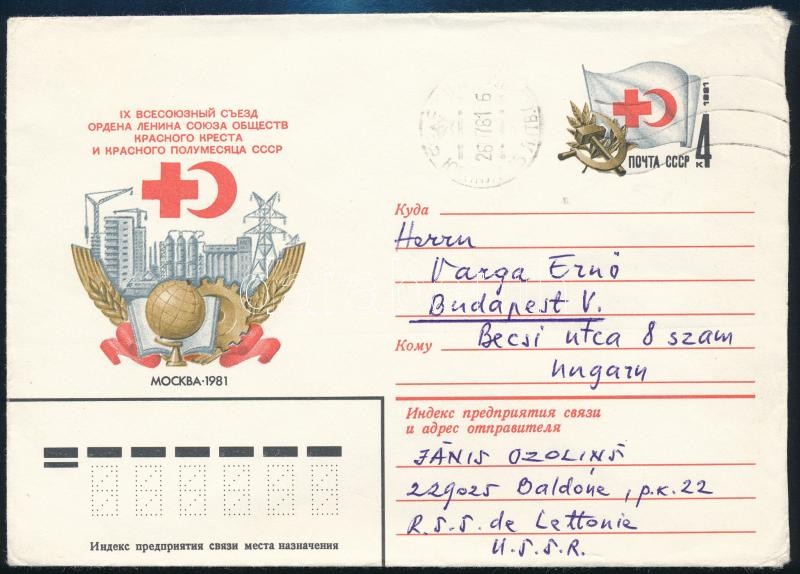 IX ВСЕСОЮЗНЫЙ СЪЕЗД
ОРДЕНА ЛЕНИНА СОЮЗА ОБЩЕСТВ
КРАСНОГО КРЕСТА
И КРАСНОГО ПОЛУМЕСЯЦА СССР
МОСКВА·1981
1981
ПОЧТА СССР 4 К
Куда
Herrn
Varga Ernö
Budapest V.
Кому Becsi utca 8 szam
Hungary
Индекс предприятия связи
и адрес отправителя
JĀNIS OZOLIŅŠ
229025 Baldone, p.k. 22
R.S.S. de Lettonie
U.S.S.R.
Индекс предприятия связи места назначения